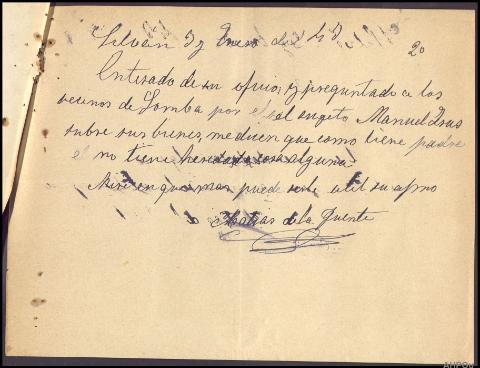 Silvan 3 y Enero de 40
20
Enterado de su oficio, y preguntado a los
vecinos de Lomba por el tal sugeto Manuel
sobre sus bienes, me dicen que como tiene padre
el no tiene heredado cosa alguna.
Mire en que mas puede serle util su afmo
Matias de la Puente
AHPOu